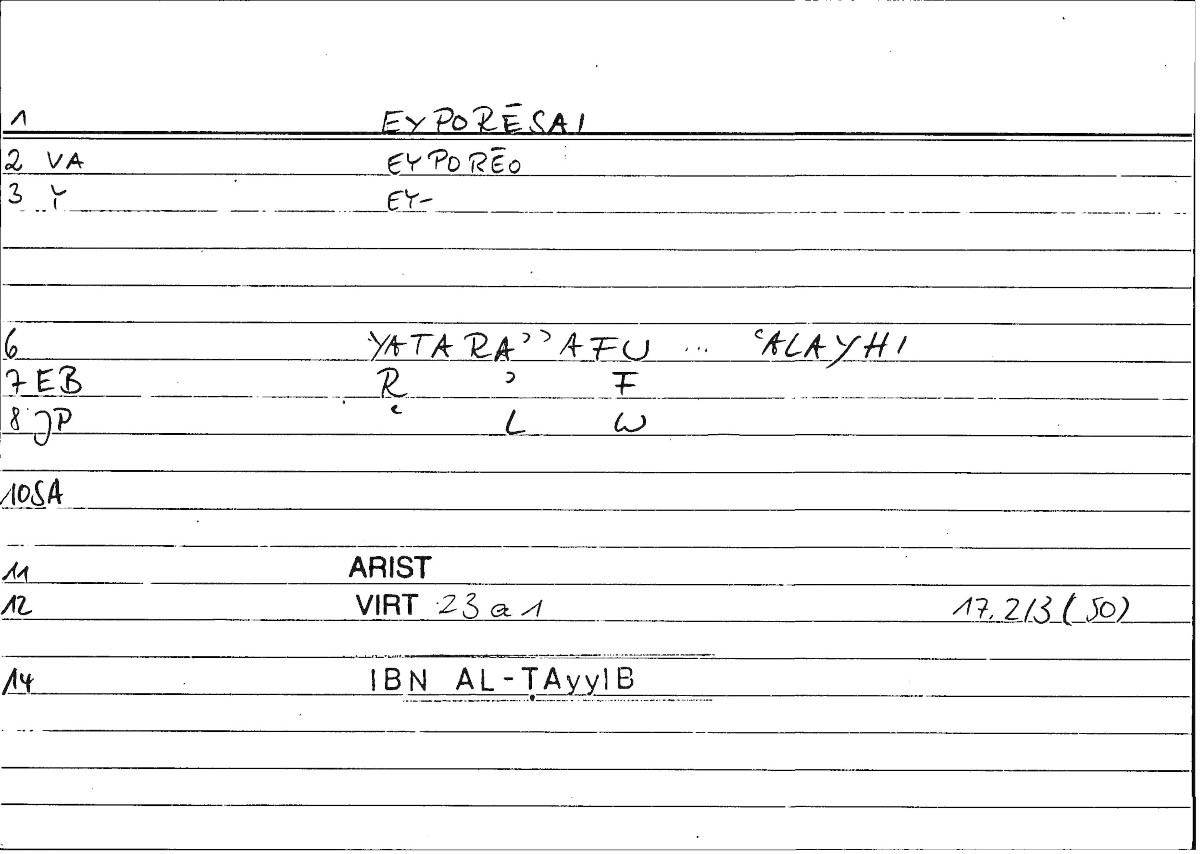 1 EYPORĒSAI
2 VA EYPORĒO
3 Y EY-
6 YATARA’’AFU ... ‘ALAYHI
7 EB R ’ F
8 JP ‘ L W
10 SA
11 ARIST
12 VIRT 23 a 1 17.2/3 (50)
14 IBN AL-ṬAyyIB